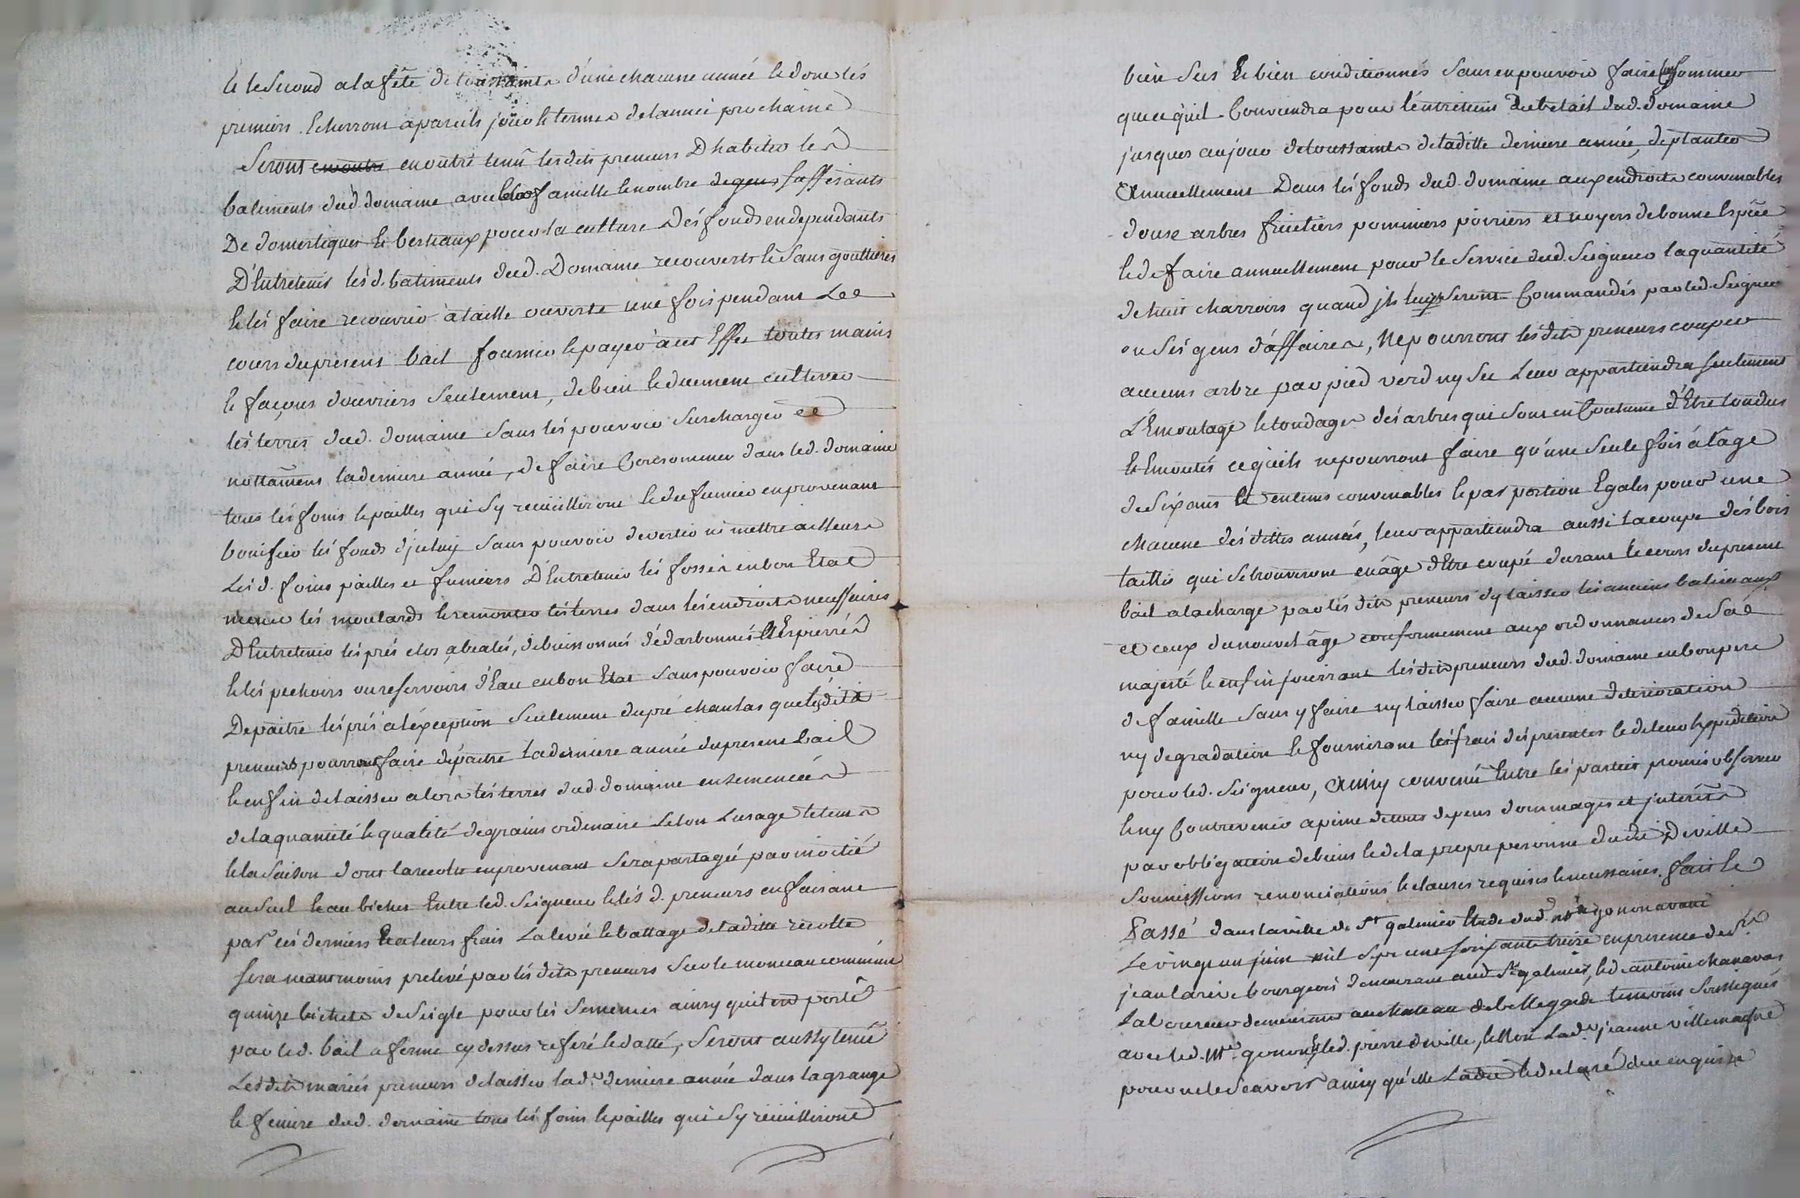 et le second a la fête de toussaints d'une chacune année et dont lés
premiers. Echerront a pareils jour et termes de lannéé prochaine
Seront en outre tenû lesdits preneurs D'habiter les
batiments dud. domaine avec leur famille le nombre de gens suffisants
De domestiques et bestiaux, pour la culture dés fonds en dependants
D'Entretenir lés d. batiments dud. Domaine recouverts et sans gouttieres
et lés faire recouvrir à taille ouverte une fois pendant Le
cours du present bail fournir et payer à cet Effet toutes mains
et façons d'ouvriers seulement, de bien et duement cultiver
lés terres dud. domaine sans lés pouvoir surcharger et
nottament la derniere année, de faire Consommer dans led. domaine
tous lés foins et pailles qui s'y recuëilliront et du fumier en provenant
bonifier lés fonds d'jceluy sans pouvoir divertir ni mettre ailleurs
Les d. foins pailles et fumiers D'Entretenir lés fossés en bon Etat
mener lés moulards et remonter lés terres dans lés endroits necessaires
D'Entretenir lés prés clos, abealés, debuissonnés dédarbonnés et Espierrés
et lés pechoirs ou reservoirs d'Eau en bon Etat sans pouvoir faire
Depaitre lés prés a lexception seulement du pré chanlas que lesdits
preneurs pourront faire dépaitre la derniere année du present bail
et enfin delaisser alors lés terres dud. domaine ensemencéés
de la quantité et qualité de grains ordinaire selon l'usage le tems
et la saison dont la recolte en provenant sera partagée par moitié
au sueil et au bichet Entre led. Seigneur et lés d. preneurs en faisant
par cés derniers et a leurs frais La levée et battage de ladite recolte
sera neantmoins prelevé par lés dits preneurs sur le monceau commun
quinze bichets de seigle pour lés semences ainsy quil est porté
par led. bail a ferme cy dessus referé et datté, Seront aussy tenû
Lesdits mariés preneurs delaisser lad. derniere année dans la grange
et feniere dud. domaine tous lés foins et pailles qui s'y recuëilliront
bien secs et bien conditionnés sans en pouvoir faire Consommer
que ce qu'il Conviendra pour l'entretien du betail dud. domaine
jusques au jour de toussaints de ladite derniere année, de planter
Annuellement Dans lés fonds dud. domaine aux endroits convenables
douze arbres fruitiers pommiers poiriers et noyers de bonne Espece
et de faire annuellement pour le service dud. Seigneur la quantité
de huit charrois quand jls leurs seront Commandés par led. Seigneur
ou sés gens d'affaires, Ne pourront lés dits preneurs couper
aucuns arbre par pied verd ny sec Leur appartiendra seulement
L'Emoutage et tondage dés arbres qui sont en Coutume d'Etre tondus
et Emoutés ce qu'ils ne pourront faire qu'une seule fois à lâge
de six ans et en tems convenables et par portion Egales pour une
chacune désdittes années, leur appartiendra aussi la coupe dés bois
taillis qui se trouveront en âge d'Etre coupé durant le cours du present
bail a la charge par lés dits preneurs d'y laisser lés anciens baliveaux
et ceux du nouvel âge conformement aux ordonnances de Sa
majesté et enfin jouiront lesdits preneurs dud. domaine en bon pere
de famille sans y faire ny laisser faire aucune deterioration
ny degradation et fourniront lés frais dés presentes et de leur Expedition
pour led. Seigneur, Ainsy convenu Entre lés parties promis observer
et ny Contrevenir a peine de tous depens dommages et jnterêts
par obligation de biens et de la propre personne dudit Deville
Soumissions renonciations et clauses requises et necessaires. fait et
Passé dans la ville de St galmier Etude dud. Me gonon avant
Le vingt un juin mil sept cent soixante treize en presence de Sr
jean larive bourgeois demeurant aud. St galmier, led. antoine chanavas
Laboureur demeurant au chateau de bellegarde temoins soussignés
avec led. Me gonon, et led. pierre deville, et Non Lad. jeanne villemagne
pour ne le sçavoir ainsy qu'elle La dit et declaré de ce enquise